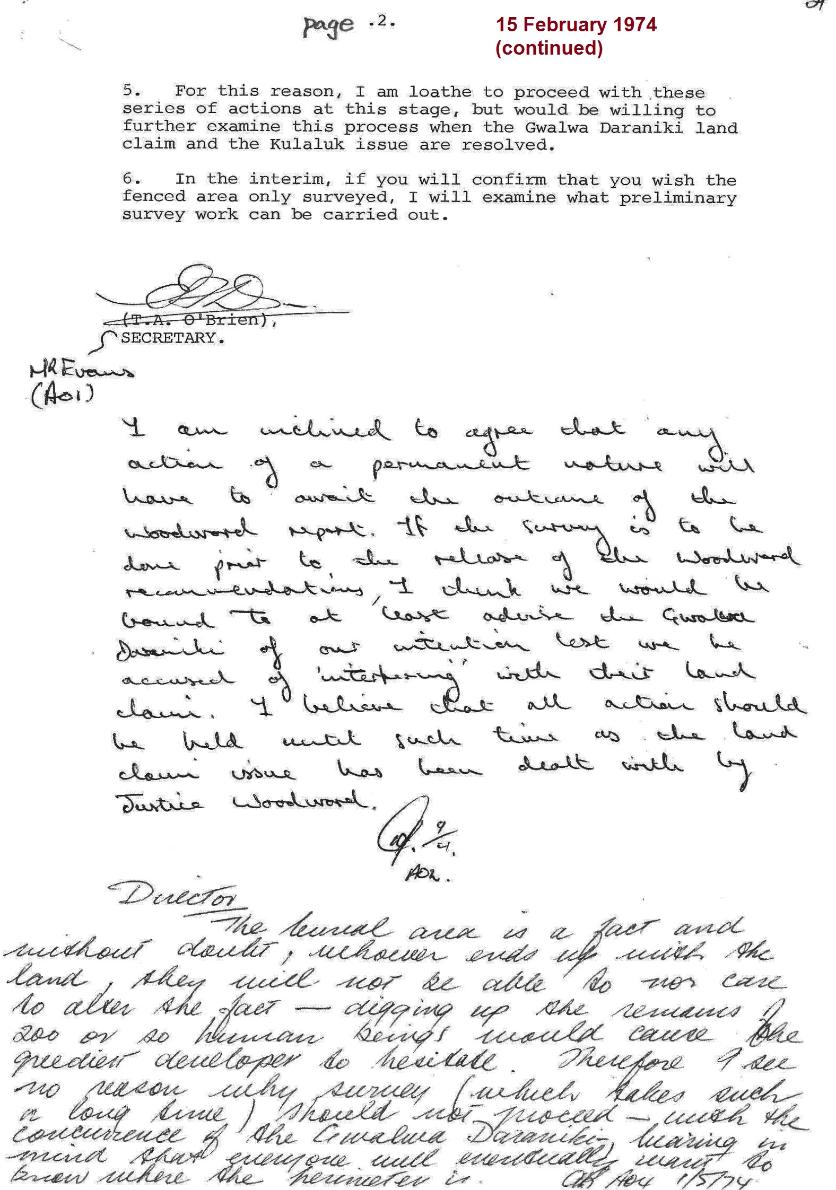 page .2.
15 February 1974
(continued)
5. For this reason, I am loathe to proceed with these
series of actions at this stage, but would be willing to
further examine this process when the Gwalwa Daraniki land
claim and the Kulaluk issue are resolved.
6. In the interim, if you will confirm that you wish the
fenced area only surveyed, I will examine what preliminary
survey work can be carried out.
(T.A. O'Brien),
SECRETARY.
MR Evans
(AO1)
I am inclined to agree that any
action of a permanent nature will
have to await the outcome of the
Woodward report. If the survey is to be
done prior to the release of the Woodward
recommendations, I think we would be
bound to at least advise the Gwalwa
Daraniki of our intention lest we be
accused of 'interfering' with their land
claim. I believe that all action should
be held until such time as the land
claim issue has been dealt with by
Justice Woodward.
9/4.
AO2.
Director
The burial area is a fact and
without doubt, whoever ends up with the
land, they will not be able to nor care
to alter the fact — digging up the remains of
200 or so human beings would cause the
greediest developer to hesitate. Therefore I see
no reason why survey (which takes such
a long time) should not proceed — with the
concurrence of the Gwalwa Daraniki, bearing in
mind that everyone will eventually want to
know where the perimeter is. AO4 1/5/74